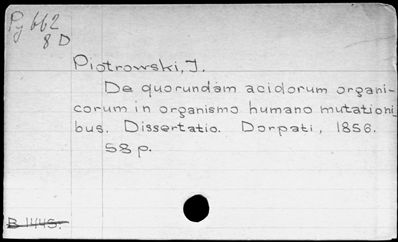 Py 662
8 D
Piotrowski, J.
De quorundam acidorum organi-
corum in organismo humano mutationi
bus. Dissertatio. Dorpati, 1856.
58 p.
B 1445.